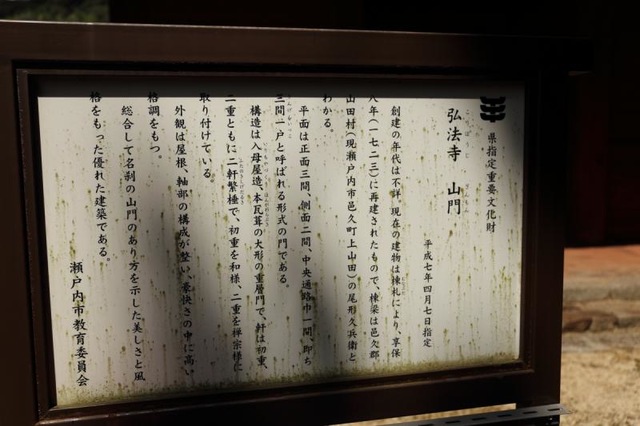 県指定重要文化財
弘法寺 山門
平成七年四月七日指定
創建の年代は不詳。現在の建物は棟札により、享保
八年(一七二三)に再建されたもので、棟梁は邑久郡
山田村(現瀬戸内市邑久町上山田)の尾形久兵衛と
わかる。
平面は正面三間、側面二間、中央通路巾一間、即ち
三間一戸と呼ばれる形式の門である。
構造は入母屋造、本瓦葺の大形の重層門で、軒は初重、
二重ともに二軒繁棰で、初重を和様、二重を禅宗様に
取り付けている。
外観は屋根、軸部の構成が整い、豪快さの中に高い
格調をもつ。
総合して名刹の山門のあり方を示した美しさと風
格をもった優れた建築である。
瀬戸内市教育委員会